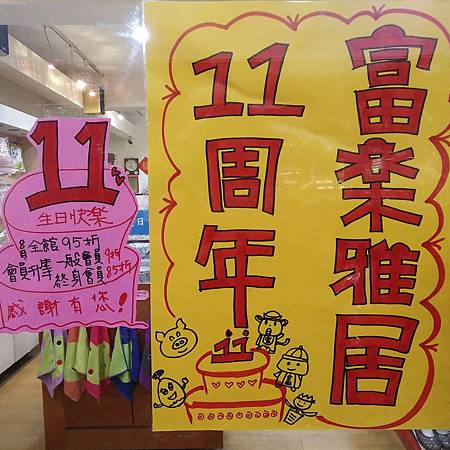 富楽雅居
11周年
11
11
生日快樂
員全館95折
會員升等一般會員9折
終身會員85折
感謝有您!